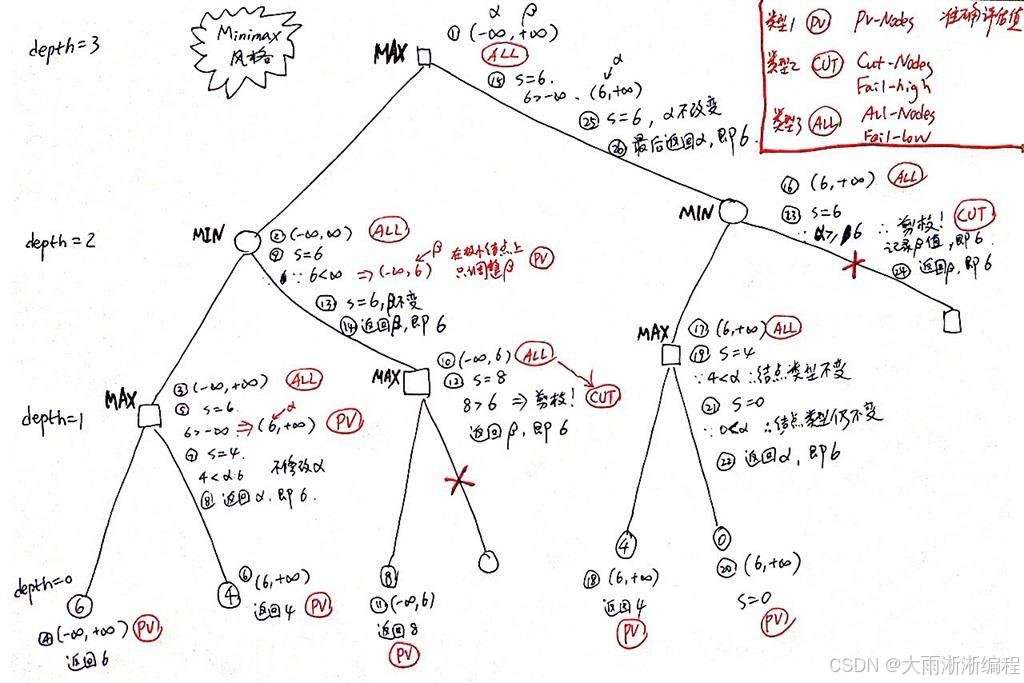 depth=3
Minimax
风格
MAX
α β
① (-∞,+∞)
ALL
⑮ s=6.
6>-∞. (6,+∞)
α
㉕ s=6, α不改变
㉖ 最后返回α,即6.
类型1 PV PV-Nodes 准确评估值
类型2 CUT Cut-Nodes
Fail-high
类型3 ALL All-Nodes
Fail-low
depth=2
MIN
② (-∞,∞) ALL
⑨ s=6
∵ 6<∞ ⇒(-∞,6)
β 在极小结点上
只调整β PV
⑬ s=6,β不变
⑭ 返回β,即6
MIN
⑯ (6,+∞) ALL
㉓ s=6
∵ α≥β6 ∴ 剪枝! CUT
记录β值,即6.
㉔ 返回β,即6
depth=1
MAX
③ (-∞,+∞) ALL
⑤ s=6.
6>-∞ ⇒(6,+∞) PV
α
⑦ s=4.
4<α:6 不修改α
⑧ 返回α,即6.
MAX
⑩ (-∞,6) ALL
⑫ s=8
8>6 ⇒ 剪枝! CUT
返回β,即6
MAX
⑰ (6,+∞) ALL
⑲ s=4
∵4<α ∴结点类型不变
㉑ s=0
∵0<α ∴结点类型仍不变
㉒ 返回α,即6
depth=0
6
④ (-∞,+∞) PV
返回6
4
⑥ (6,+∞)
返回4 PV
8
⑪ (-∞,6)
返回8
PV
4
⑱ (6,+∞)
返回4
PV
0
⑳ (6,+∞)
s=0
PV
CSDN @大雨淅淅编程